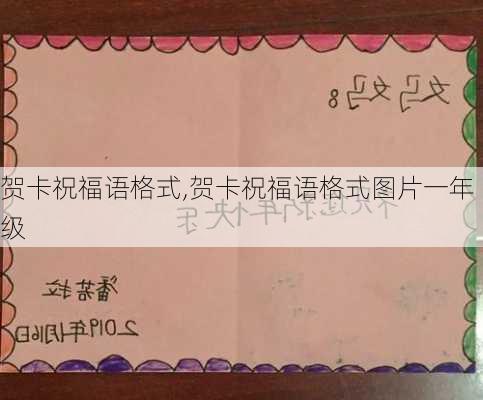 妈妈:
贺卡祝福语格式,贺卡祝福语格式图片一年
级
新年快乐
潘若拉
2019年1月16日